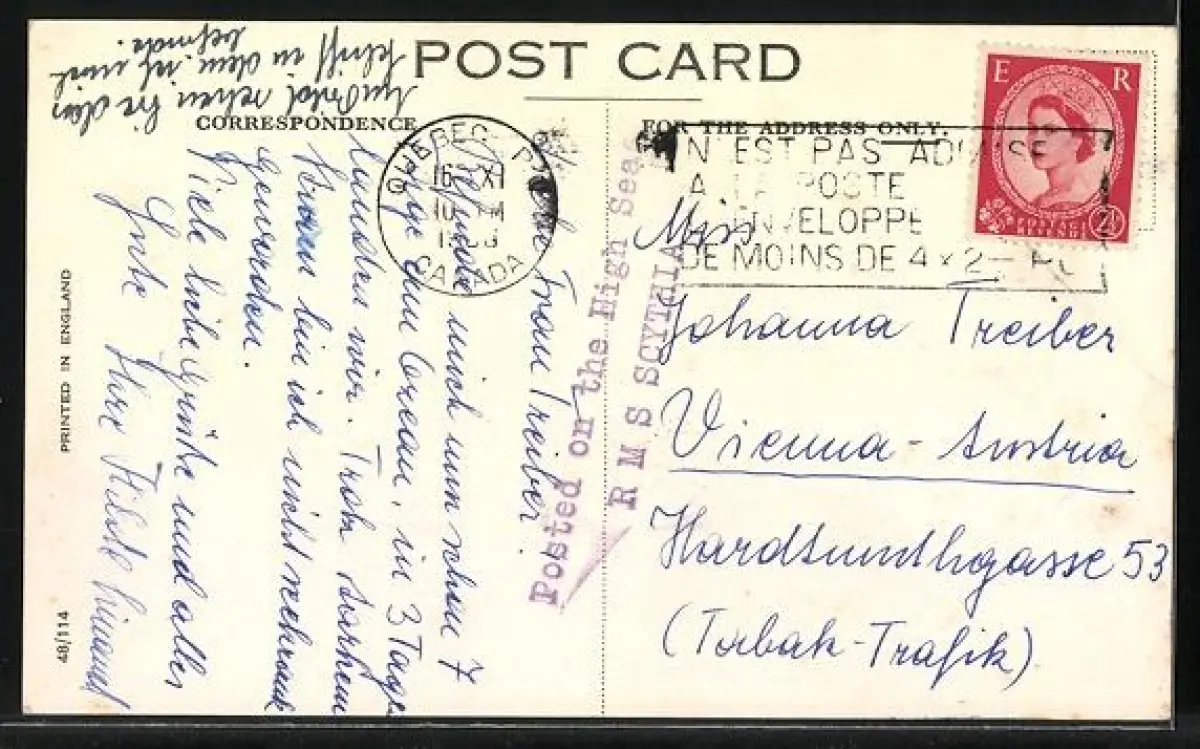 POST CARD
CORRESPONDENCE
FOR THE ADDRESS ONLY.
E R
POSTAGE REVENUE
2½
QUEBEC P
16 XI
10 PM
CANADA
N'EST PAS ADMISE
A LA POSTE
ENVELOPPE
DE MOINS DE 4 x 2
Posted on the High Seas
R M S SCYTHIA
Miss
Johanna Treiber
Vienna - Austria
Hardtmuthgasse 53
(Tabak-Trafik)
Liebe Frau Treiber!
Befinde mich nun schon 7
Tage am Ocean, in 3 Tage
landen wir. Trotz starkem
Sturm bin ich nicht seekrank
geworden.
Viele liebe Grüße und alles
Gute Ihre
Umseitig sehen Sie das
Schiff in dem ich mich
befinde.
PRINTED IN ENGLAND
48/114